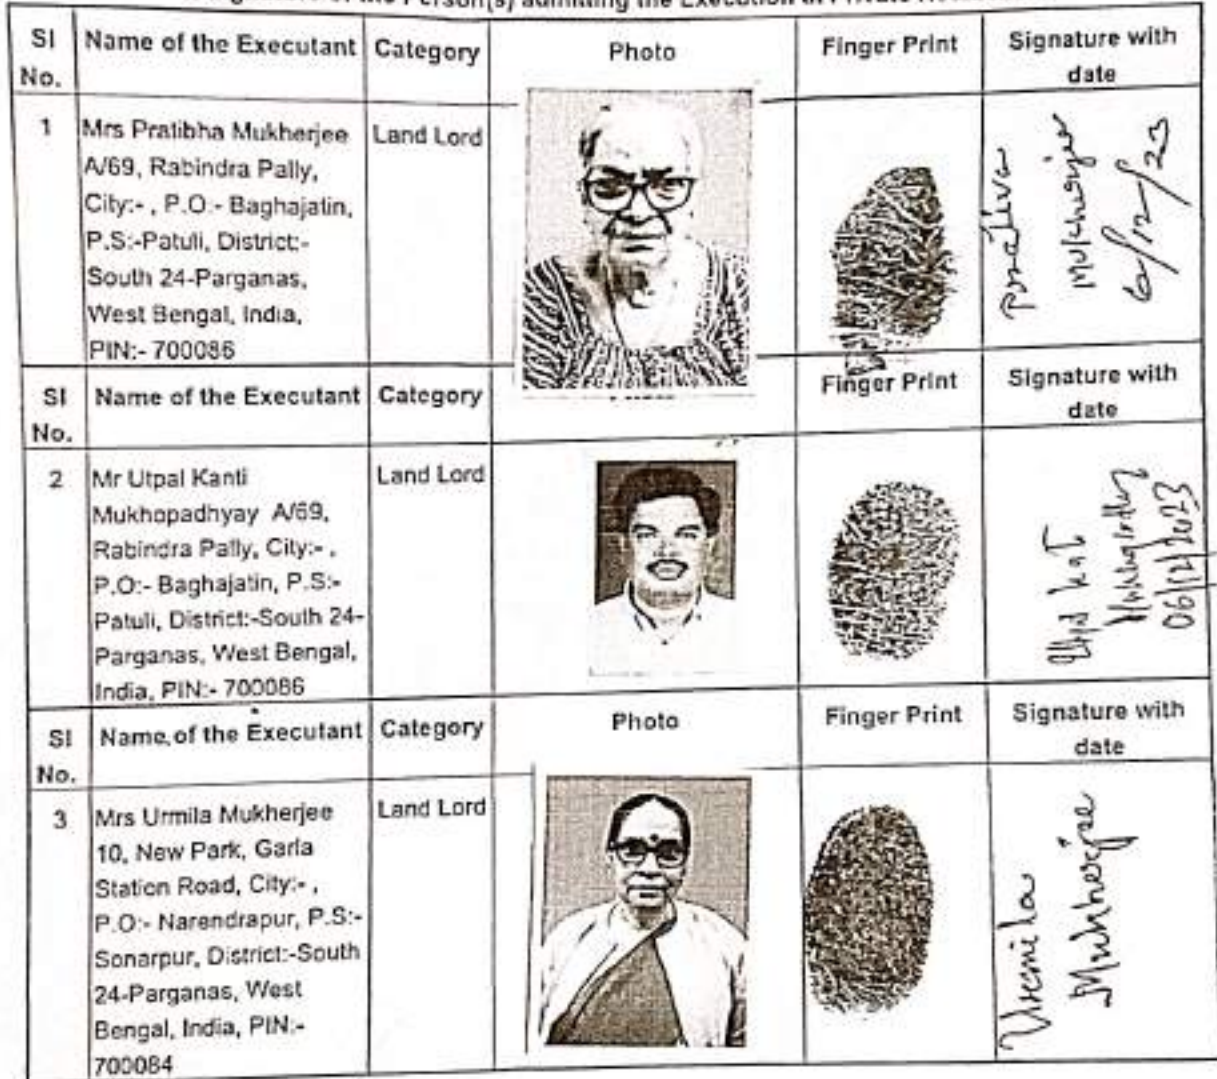 of the Person(s) admitting the Execution at Private
Sl No. Name of the Executant Category Photo Finger Print Signature with date
1 Mrs Pratibha Mukherjee Land Lord
A/69, Rabindra Pally,
City:- , P.O:- Baghajatin,
P.S:-Patuli, District:-
South 24-Parganas,
West Bengal, India,
PIN:- 700086
Prativa
Mukherjee
6/12/23
Sl No. Name of the Executant Category Finger Print Signature with date
2 Mr Utpal Kanti Land Lord
Mukhopadhyay A/69,
Rabindra Pally, City:- ,
P.O:- Baghajatin, P.S:-
Patuli, District:-South 24-
Parganas, West Bengal,
India, PIN:- 700086
06/12/2023
Sl No. Name of the Executant Category Photo Finger Print Signature with date
3 Mrs Urmila Mukherjee Land Lord
10, New Park, Garia
Station Road, City:- ,
P.O:- Narendrapur, P.S:-
Sonarpur, District:-South
24-Parganas, West
Bengal, India, PIN:-
700084
Urmila
Mukherjee